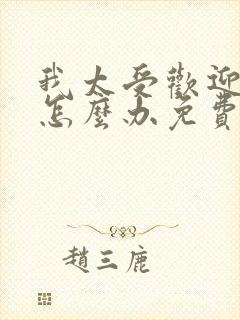 我太受歡迎
怎麼办免費
趙三鹿